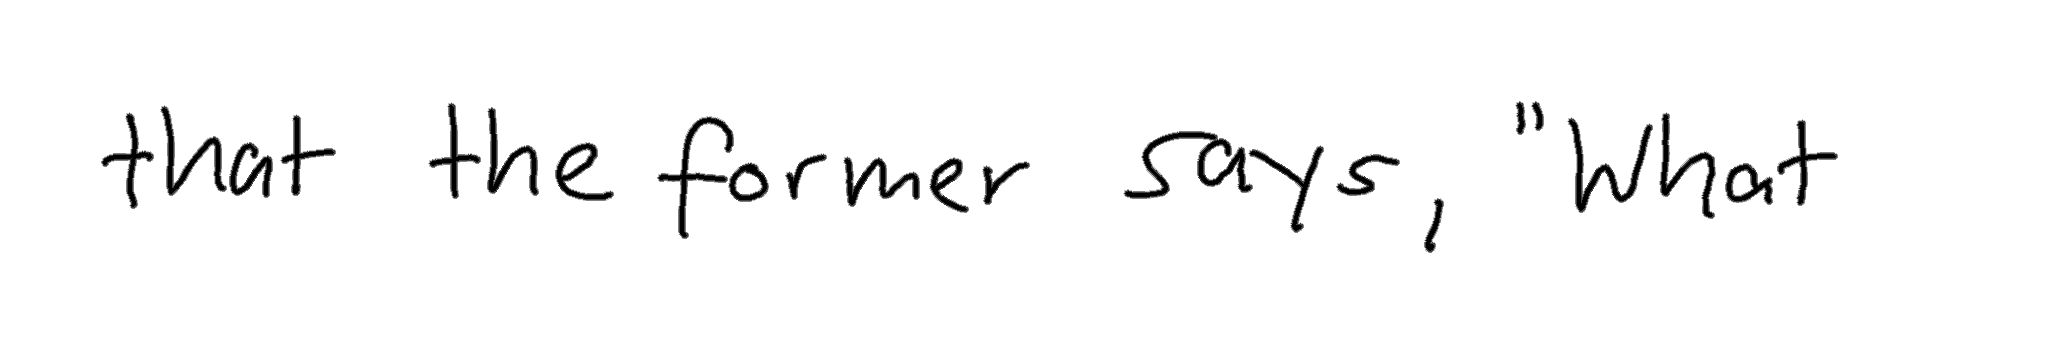 that the former says, "What